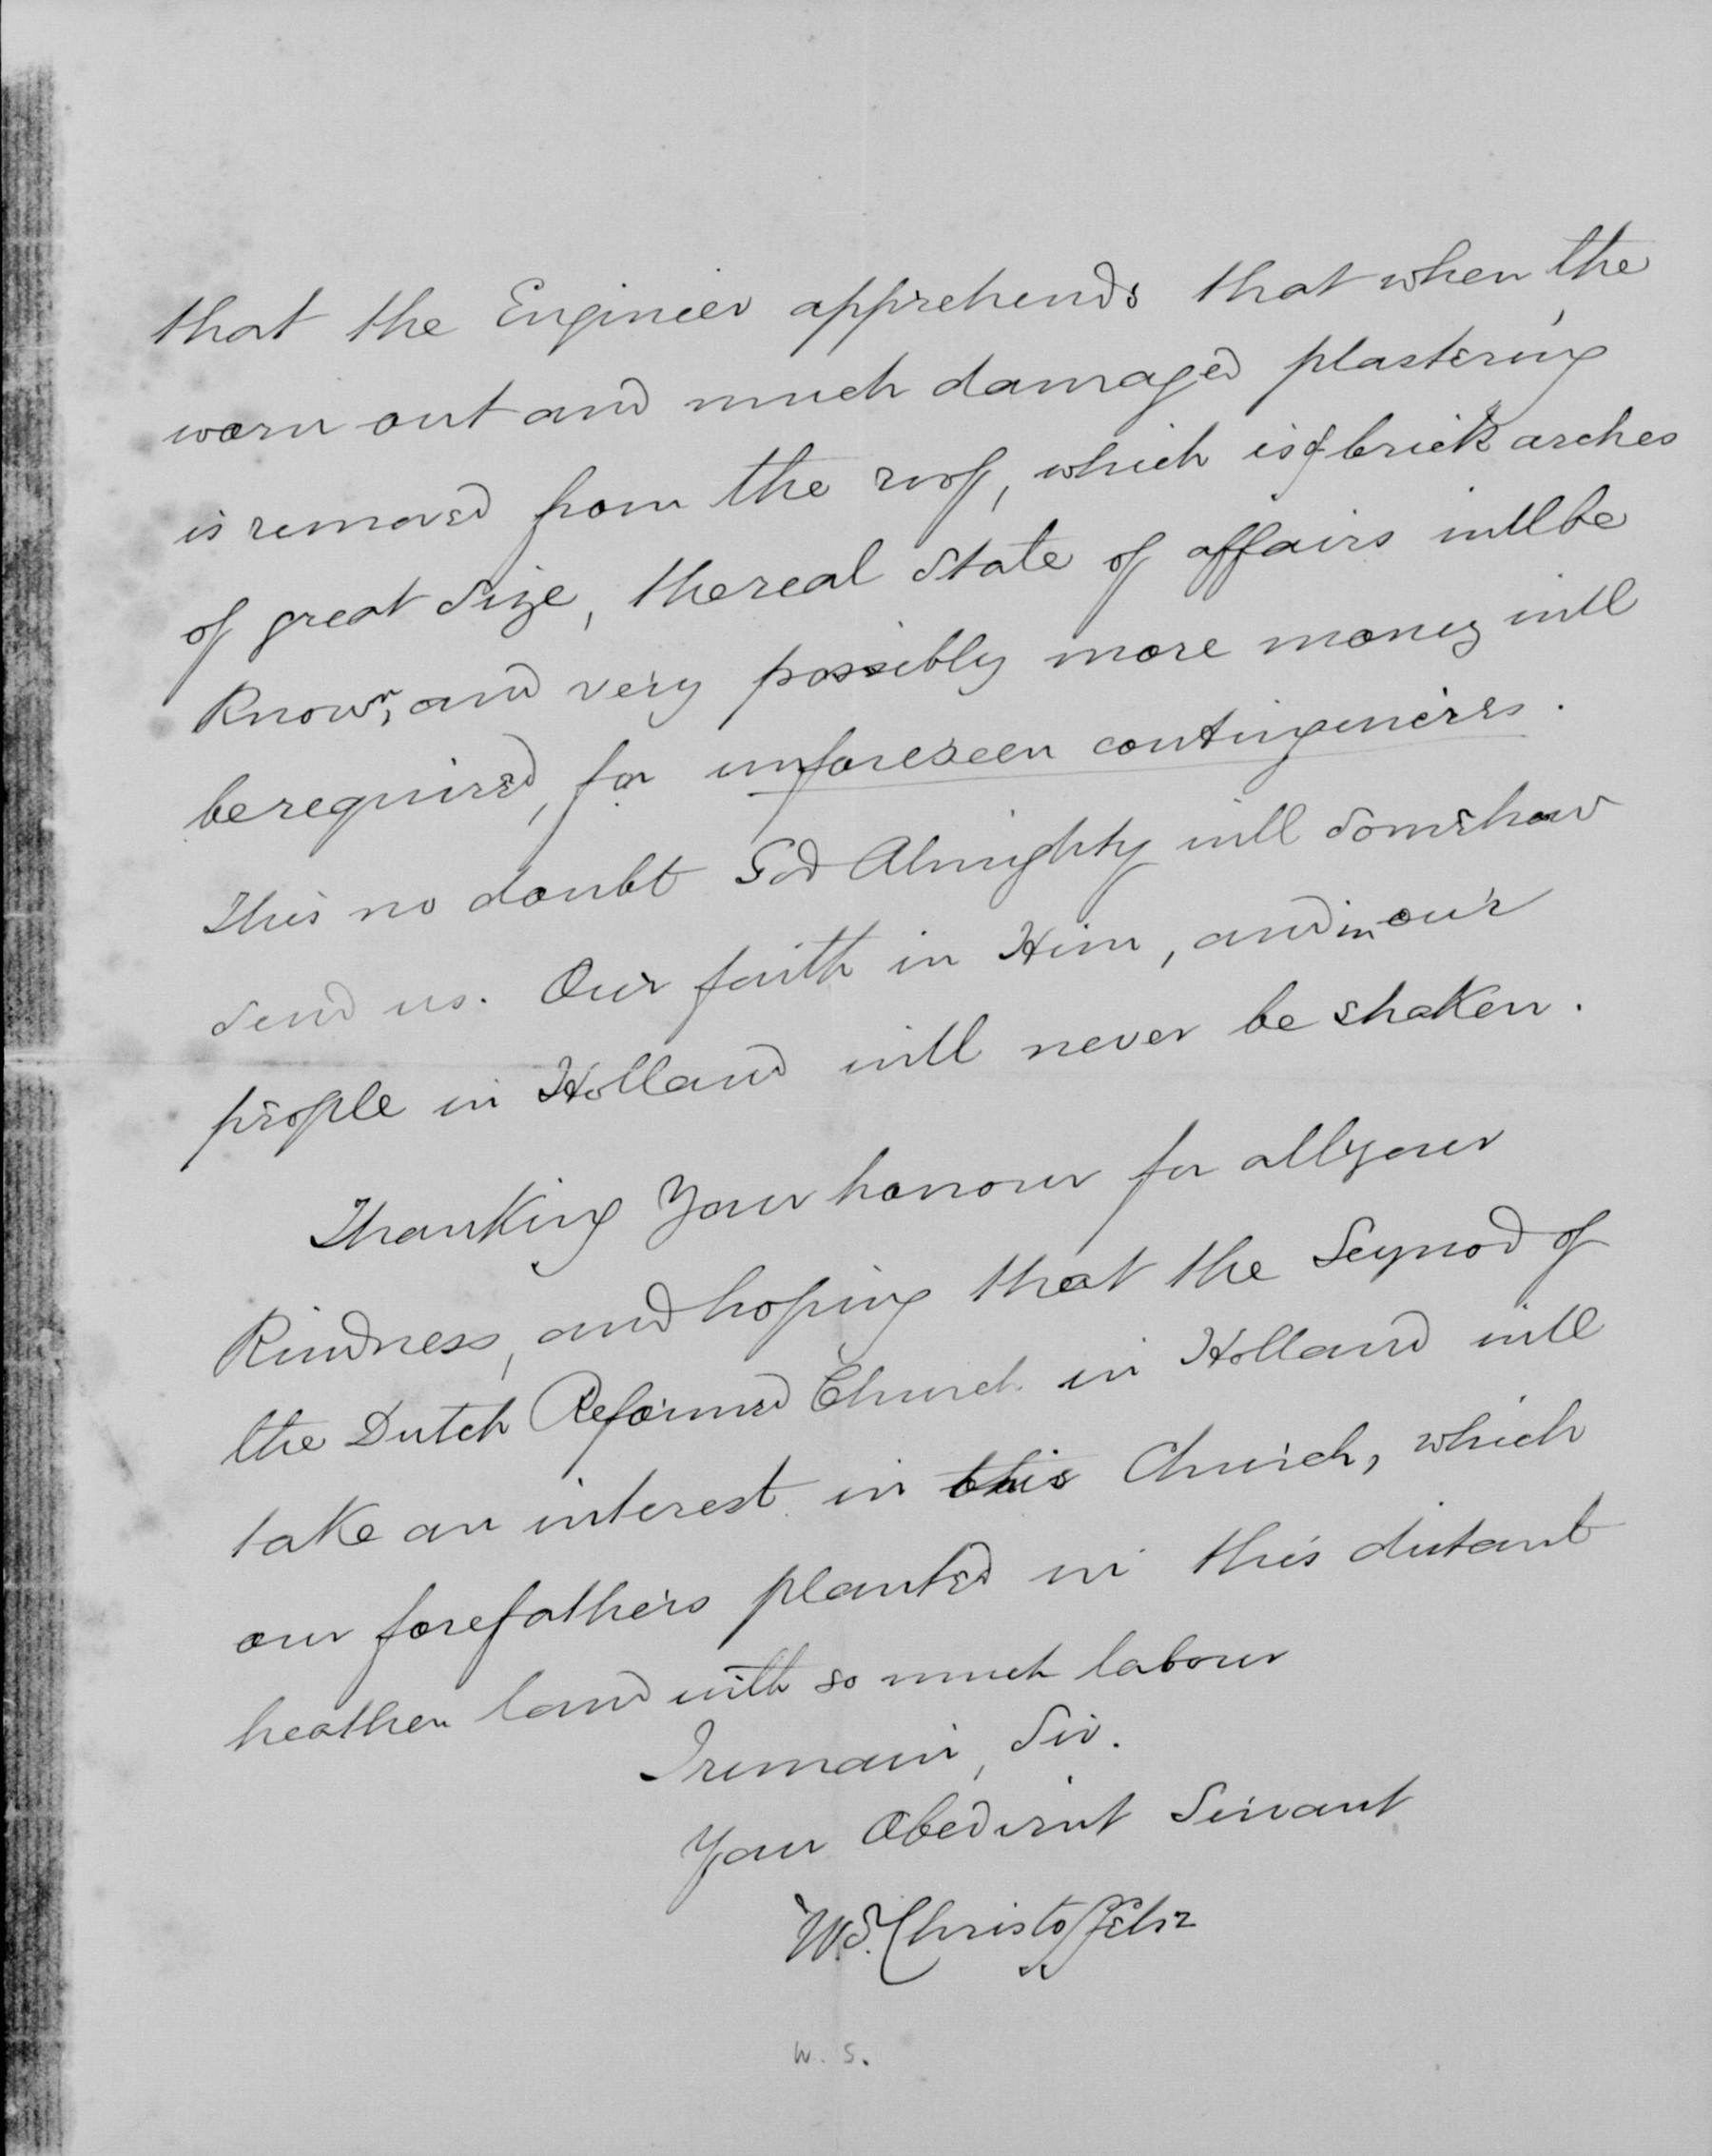 that the Engineer apprehends that when, the
worn out and much damaged plastering
is removed from the roof, which is of brick arches
of great size, the real state of affairs will be
known, and very possibly more money will
be required, for unforeseen contingencies.
This no doubt God Almighty will somehow
send us. Our faith in Him, and in our
people in Holland will never be shaken.
Thanking Your honour for all your
Kindness, and hoping that the Seynod of
the Dutch Reformed Church in Holland will
take an interest in this Church, which
our forefathers planted in this distant
heathen land with so much labour
I remain, Sir.
Your Obedient Servant
W.S. Christoffelsz
W. S.